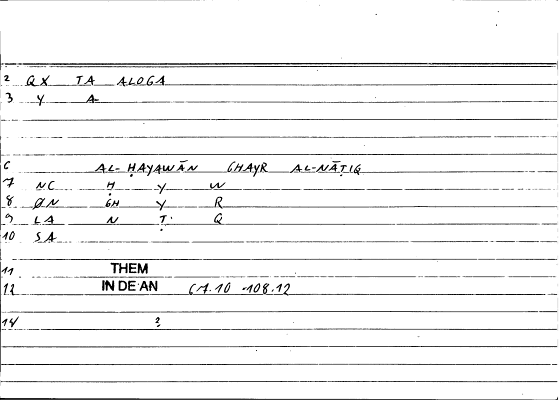 2 QX TA ALOGA
3 Y A-
6 AL-ḤAYAWĀN GHAYR AL-NĀṬIQ
7 NC Ḥ Y W
8 ØN GH Y R
9 LA N Ṭ Q
10 SA
11 THEM
12 IN DE AN 67.10 -108.12
14 ?